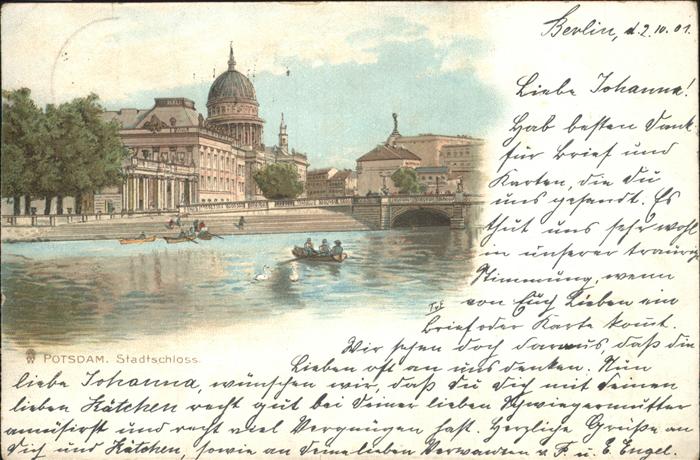 Berlin, d. 2.10.01.
Liebe Johanna!
Hab besten Dank
für Brief und
Karten, die Du
uns gesandt. Es
thut uns sehr wohl
in unserer traurig
Stimmung, wenn
von Euch Lieben ein
Brief oder Karte komt.
Wir sehen doch daraus daß die
Lieben oft an uns denken. Nun
liebe Johanna, wünschen wir, daß Du Dich mit Deinen
lieben Kätchen recht gut bei Deiner lieben Schwiegermutter
amüsirst und recht viel Vergnügen hast. Herzliche Grüße an
Dich und Kätchen, sowie an Deine lieben Verwandten v. F. u. E. Engel.
TvE
POTSDAM. Stadtschloss.